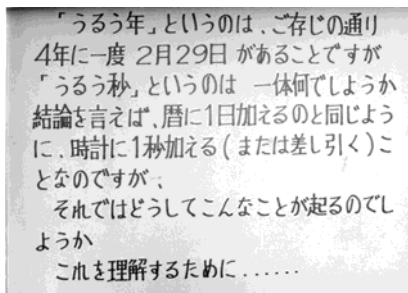 「うるう年」というのは、ご存じの通り
4年に一度 2月29日 があることですが
「うるう秒」というのは 一体何でしょうか
結論を言えば、暦に1日加えるのと同じよう
に、時計に1秒加える(または差し引く)こ
となのですが、
それではどうしてこんなことが起るのでし
ようか
これを理解するために......